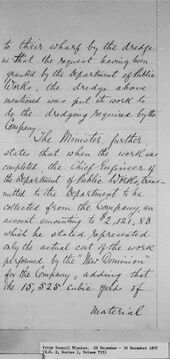 to their wharf by the dredge
and that the request having been
granted by the Department of Public
Works, the dredge above
mentioned was put to work to
do the dredging required by the
Company.
The Minister further
states that when the work was
completed, the Chief Engineer of
the Department of Public Works trans
mitted to the Department to be
collected from the Company an
account amounting to $2,121.83
which he stated represented
only the actual cost of the work
performed by the "New Dominion"
for the Company, adding that
the 15,525 cubic yards of
material
Privy Council Minutes, 22 December - 30 December 1897
(R.G. 2, Series 1, Volume 753)